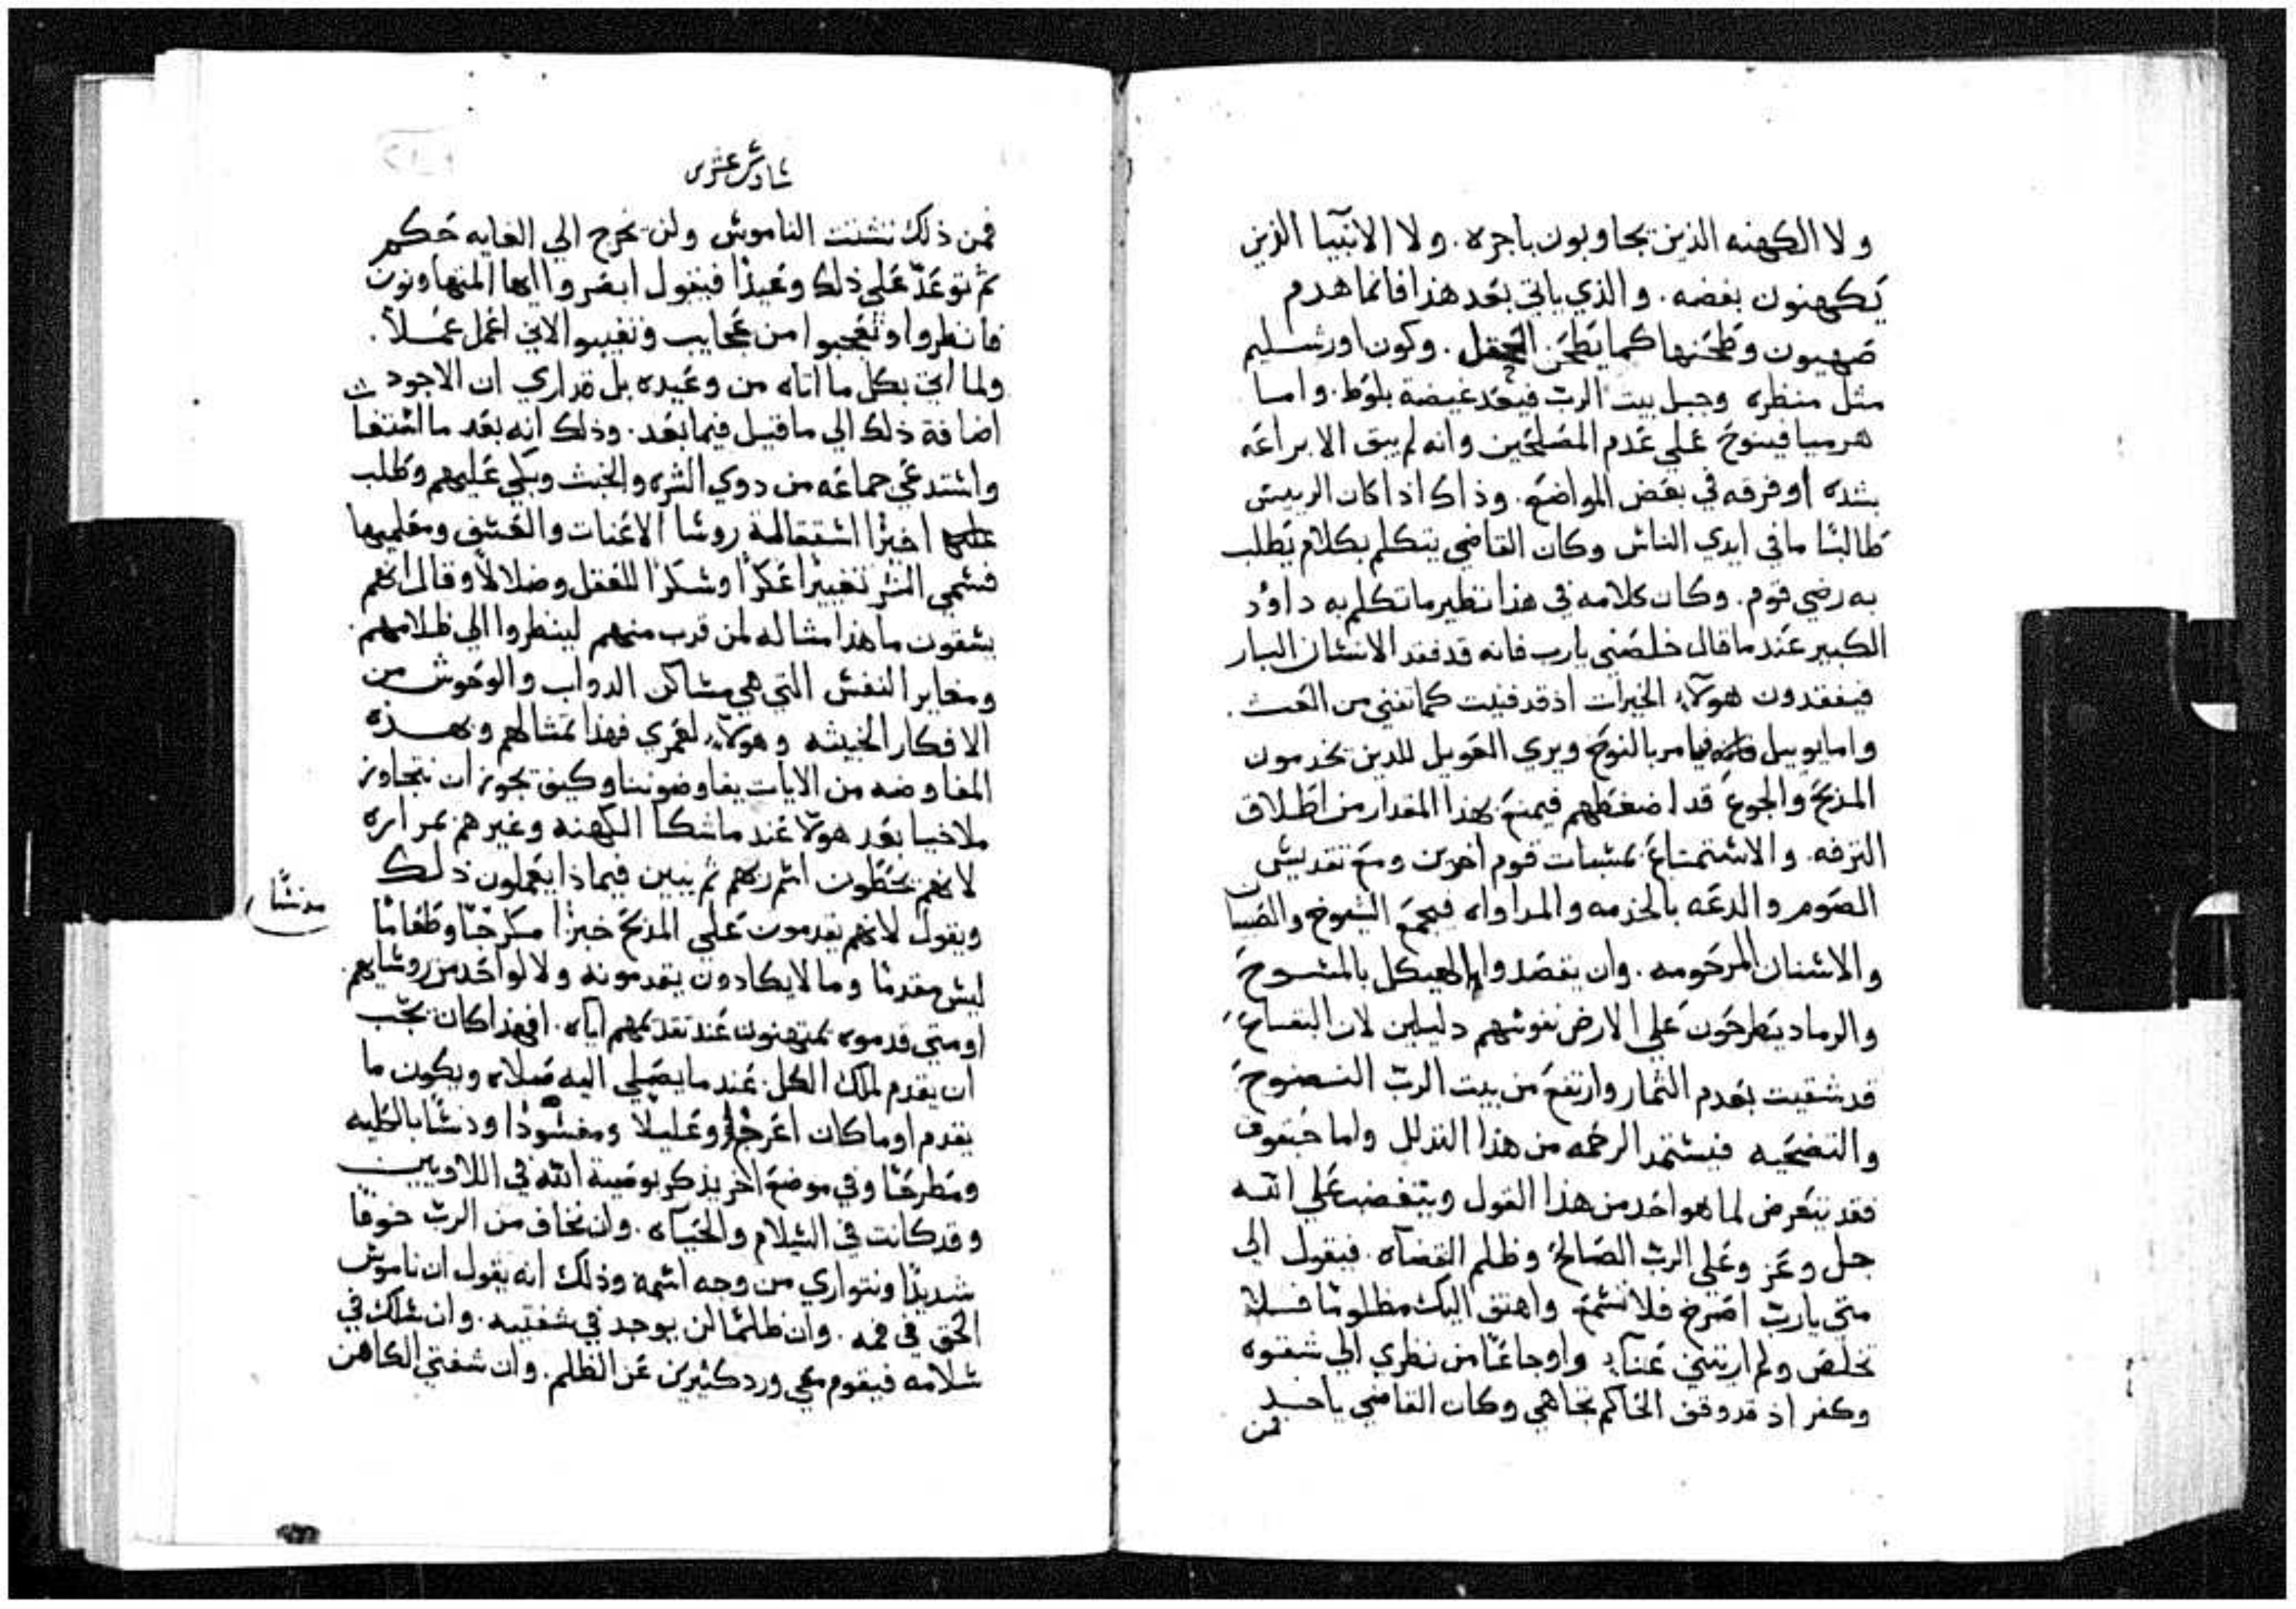 ولا الكهنه الذين يجاوبون باجره. ولا الانبيا الذين
يَكهنون بفضه. والذي ياتي بَعد هذا فانما هدم
صَهيون وطحَنها كما يَطحَن الحَقل. وكون اورشليم
مثل منطره وجبل بيت الربّ فيعَد غيضة بلوط. واما
هرميا فينوحَ عَلي عَدم المصَلحَين وانه لم يبق الا براعَه
بشده او فرقه في بعَض المواضعَ. وذاك اذا كان الرييس
طالبًا ما في ايدي الناس وكان القاضي يتكلم بكلام يَطلب
به رضي قوم. وكان كلامه في هذا نظير ما تكلم به داوُد
الكبير عَند ما قال خلصَني يا رب فانه قد فقد الانسَان البار
فيفقدون هولآء الخيرات اذ قد فنيت كما تفني من العَث.
واما يوييل فيامر بالنوحَ ويري العَويل للدين يخدمون
المذبحَ والجوعَ قد اضغَطهم فيمنعَ بهذا المقدار من اطلاق
الترفه. والاستمتاعَ بمسَبات قوم اخرين ومعَ تقديس
الصَوم والدعَه بالخدمه والمداواه فيجمعَ الشيوخ والصَبيان
والاسَنان المرحَومه. وان يقصَدوا الهيكل بالمسَوحَ
والرماد يَنطرحَون عَلي الارض نفوسَهم دليلين لان البقاعَ
قد شقيت بعَدم الثمار وارتفعَ من بيت الربّ النضوحَ
والتضحَيه فيسَتمد الرحَمه من هذا التذلل واما حَبقوق
فقد يتعَرض لما هو احَد من هذا القول ويتغضب عَلي الله
جل وعَز وعَلي الربّ الصَالحَ وظلم القضاه. فيقول الي
متي يا ربّ اصَرخ فلا تسَمعَ واهتف اليك مظلومًا فلا
تخلصَ ولم اريتني عَنآءً واوجاعَا من نظري الي شقوه
وكفر اذ قد وقف الحَاكم تجاهي وكان القاضي ياخد
فمن
سَادسَ عَشر
فمن ذلك تشتت الناموسَ ولن يخرج الي الغايه حَكم
ثم توعَدّ عَلي ذلك وعَيدًا فيقول ابصَروا ايها المتهاونون
فانظروا وتعَجبوا من عَجايب وتغيبوا لاني اعَمل عَملاً.
ولما اتي بكل ما اتاه من وعَيده بل قد اري ان الاجود
اضافة ذلك الي ما قيل فيما بعَد. وذلك انه بعَد ما اسَتعفا
واسَتدعَي جماعَه من دوي الشره والخبث وبكي عَليهم وطلب
اخيرًا اسَتقالة روسَا الاعَنات والعَسَف ومعَلميها
فسَمي الشر تغييرًا عَكرًا وسَكرًا للعَقل وضلالاً وقال انهم
يسَقون ما هذا مثاله لمن قرب منهم لينظروا الي ظلامهم
ومغاير النفسَ التي هي مسَاكن الدواب والوحَوش من
الافكار الخبيثه وهولآء لعَمري فهذا تمثالهم وبهذه
المفاوضه من الايات يفاوضوننا وكيف يجوز ان نتجاوز
ملاخيا بعَد هولا عَند ما شكا الكهنه وغيرهم بمراره
لانهم يحَطون اسَم ربهم ثم يبين فيماذا يعَملون ذلك
ويقول لانهم يقدمون عَلي المذبحَ خبزًا وطعَامًا
ليسَ مقدسًا وما لا يكادون يقدمونه ولا لواحَد من روسَايهم
او متي قدموه يمتهنون عَند تقديمهم اياه. افهذا كان يجَب
ان يقدم لملك الكل. عَند ما يصَلي اليه صَلاه ويكون ما
يقدم او ما كان اعَرجًا وعَليلاً ومفسَودًا ودنسَا بالكليه
ومَطرحَا وفي موضعَ اخر يذكر بوصَية الله في اللاويين
وقد كانت في السَلام والحَياه. وان نخاف من الربّ خوفًا
شديدًا ونتواري من وجه اسَمه وذلك انه يقول ان ناموسَ
الحَق في فمه. وان ظلمًا لن يوجد في شفتيه. وان سَلك في
سَلامه فيقوم معَي ورد كثيرين عَن الظلم. وان شفتي الكاهن